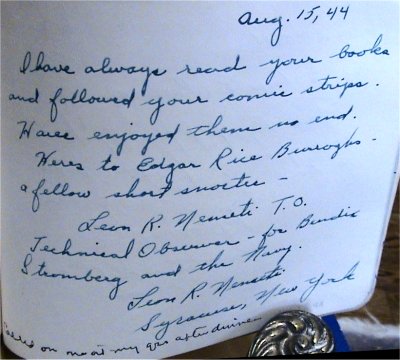 Aug. 15, 44
I have always read your books
and followed your comic strips.
Have enjoyed them no end.
Heres to Edgar Rice Burroghs -
a fellow short snorter -
Leon R. Nemeti T.O.
Technical Observer - for Bendix
Stromberg and the Navy.
Leon R. Nemeti
Syracuse, New York
Called on me at my qrs after dinner